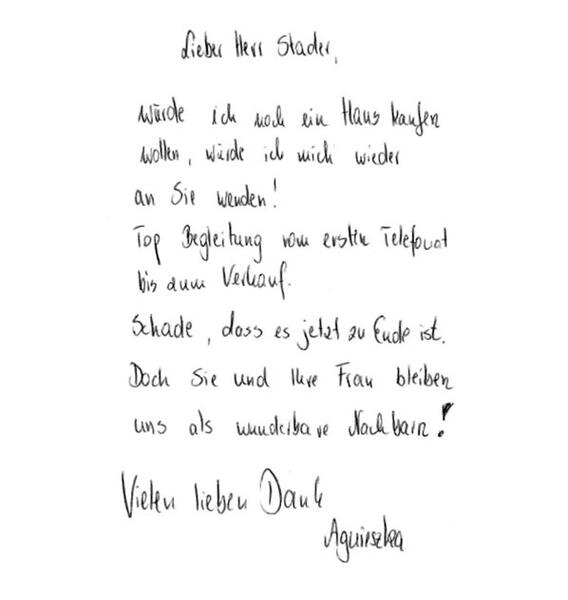 Lieber Herr Stader,
würde ich noch ein Haus kaufen
wollen, würde ich mich wieder
an Sie wenden!
Top Begleitung vom ersten Telefonat
bis zum Verkauf.
Schade, dass es jetzt zu Ende ist.
Doch Sie und Ihre Frau bleiben
uns als wunderbare Nachbarn!
Vielen lieben Dank
Agnieszka